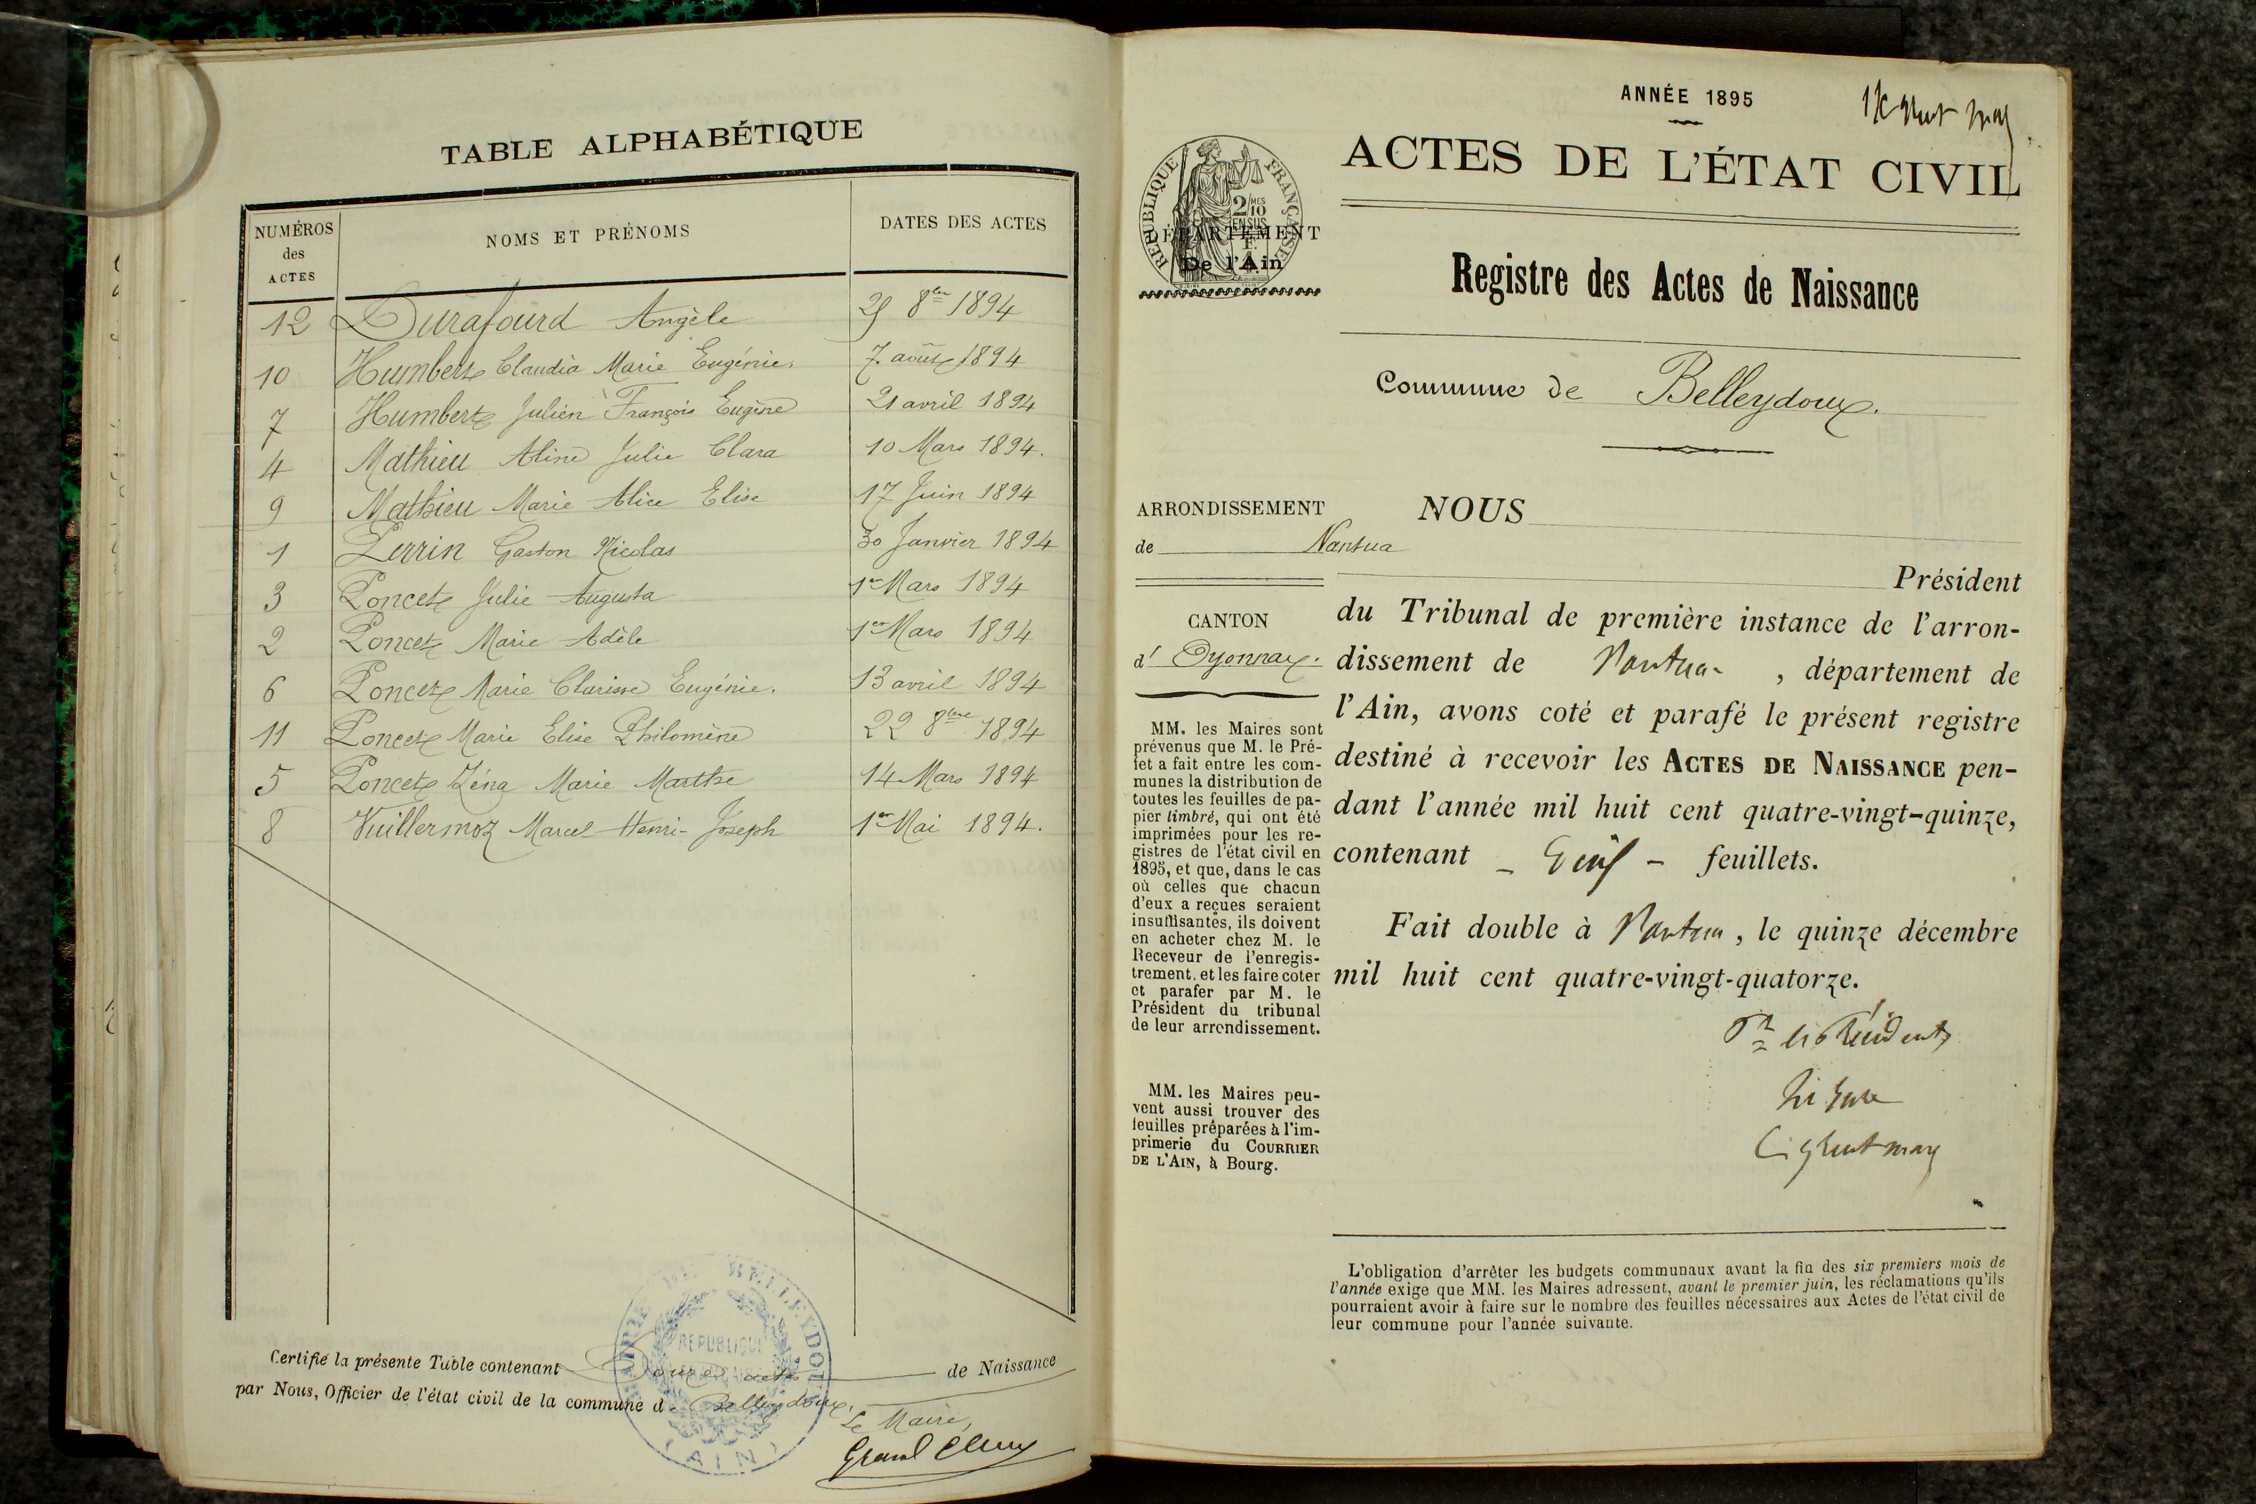 TABLE ALPHABÉTIQUE
NUMÉROS
des
ACTES
NOMS ET PRÉNOMS
DATES DES ACTES
12 Durafourd Angèle 25 8bre 1894
10 Humbert Claudia Marie Eugénie. 7 août 1894
7 Humbert Julien François Eugène 21 avril 1894
4 Mathieu Aline Julie Clara 10 Mars 1894.
9 Mathieu Marie Alice Elise 17 Juin 1894
1 Perrin Gaston Nicolas 30 Janvier 1894
3 Poncet Julie Augusta 1er Mars 1894
2 Poncet Marie Adèle 1er Mars 1894
6 Poncet Marie Clarisse Eugénie. 13 avril 1894
11 Poncet Marie Elise Philomène 22 8bre 1894
5 Poncet Zéna Marie Marthe 14 Mars 1894
8 Vuillermoz Marcel Henri-Joseph 1er Mai 1894.
Certifié la présente Table contenant Douze actes de Naissance
par Nous, Officier de l'état civil de la commune d Belleydoux.
Le Maire,
Grand Clémy
MAIRIE DE BELLEYDOUX
REPUBLIQUE
FRANÇAISE
(AIN)
ANNÉE 1895
ACTES DE L'ÉTAT CIVIL
REPUBLIQUE FRANÇAISE
2/10
MES
EN SUS
DÉPARTEMENT
De l'Ain
Registre des Actes de Naissance
Commune de Belleydoux.
ARRONDISSEMENT
de Nantua
CANTON
d' Oyonnax.
MM. les Maires sont
prévenus que M. le Pré-
fet a fait entre les com-
munes la distribution de
toutes les feuilles de pa-
pier timbré, qui ont été
imprimées pour les re-
gistres de l'état civil en
1895, et que, dans le cas
où celles que chacun
d'eux a reçues seraient
insuffisantes, ils doivent
en acheter chez M. le
Receveur de l'enregis-
trement, et les faire coter
et parafer par M. le
Président du tribunal
de leur arrondissement.
MM. les Maires peu-
vent aussi trouver des
feuilles préparées à l'im-
primerie du COURRIER
DE L'AIN, à Bourg.
NOUS
Président
du Tribunal de première instance de l'arron-
dissement de Nantua , département de
l'Ain, avons coté et parafé le présent registre
destiné à recevoir les ACTES DE NAISSANCE pen-
dant l'année mil huit cent quatre-vingt-quinze,
contenant - - feuillets.
Fait double à Nantua, le quinze décembre
mil huit cent quatre-vingt-quatorze.
Pr le Président
L'obligation d'arrêter les budgets communaux avant la fin des six premiers mois de
l'année exige que MM. les Maires adressent, avant le premier juin, les réclamations qu'ils
pourraient avoir à faire sur le nombre des feuilles nécessaires aux Actes de l'état civil de
leur commune pour l'année suivante.